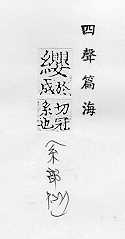 四聲篇海
纓
於切冠
成系也
(糸部